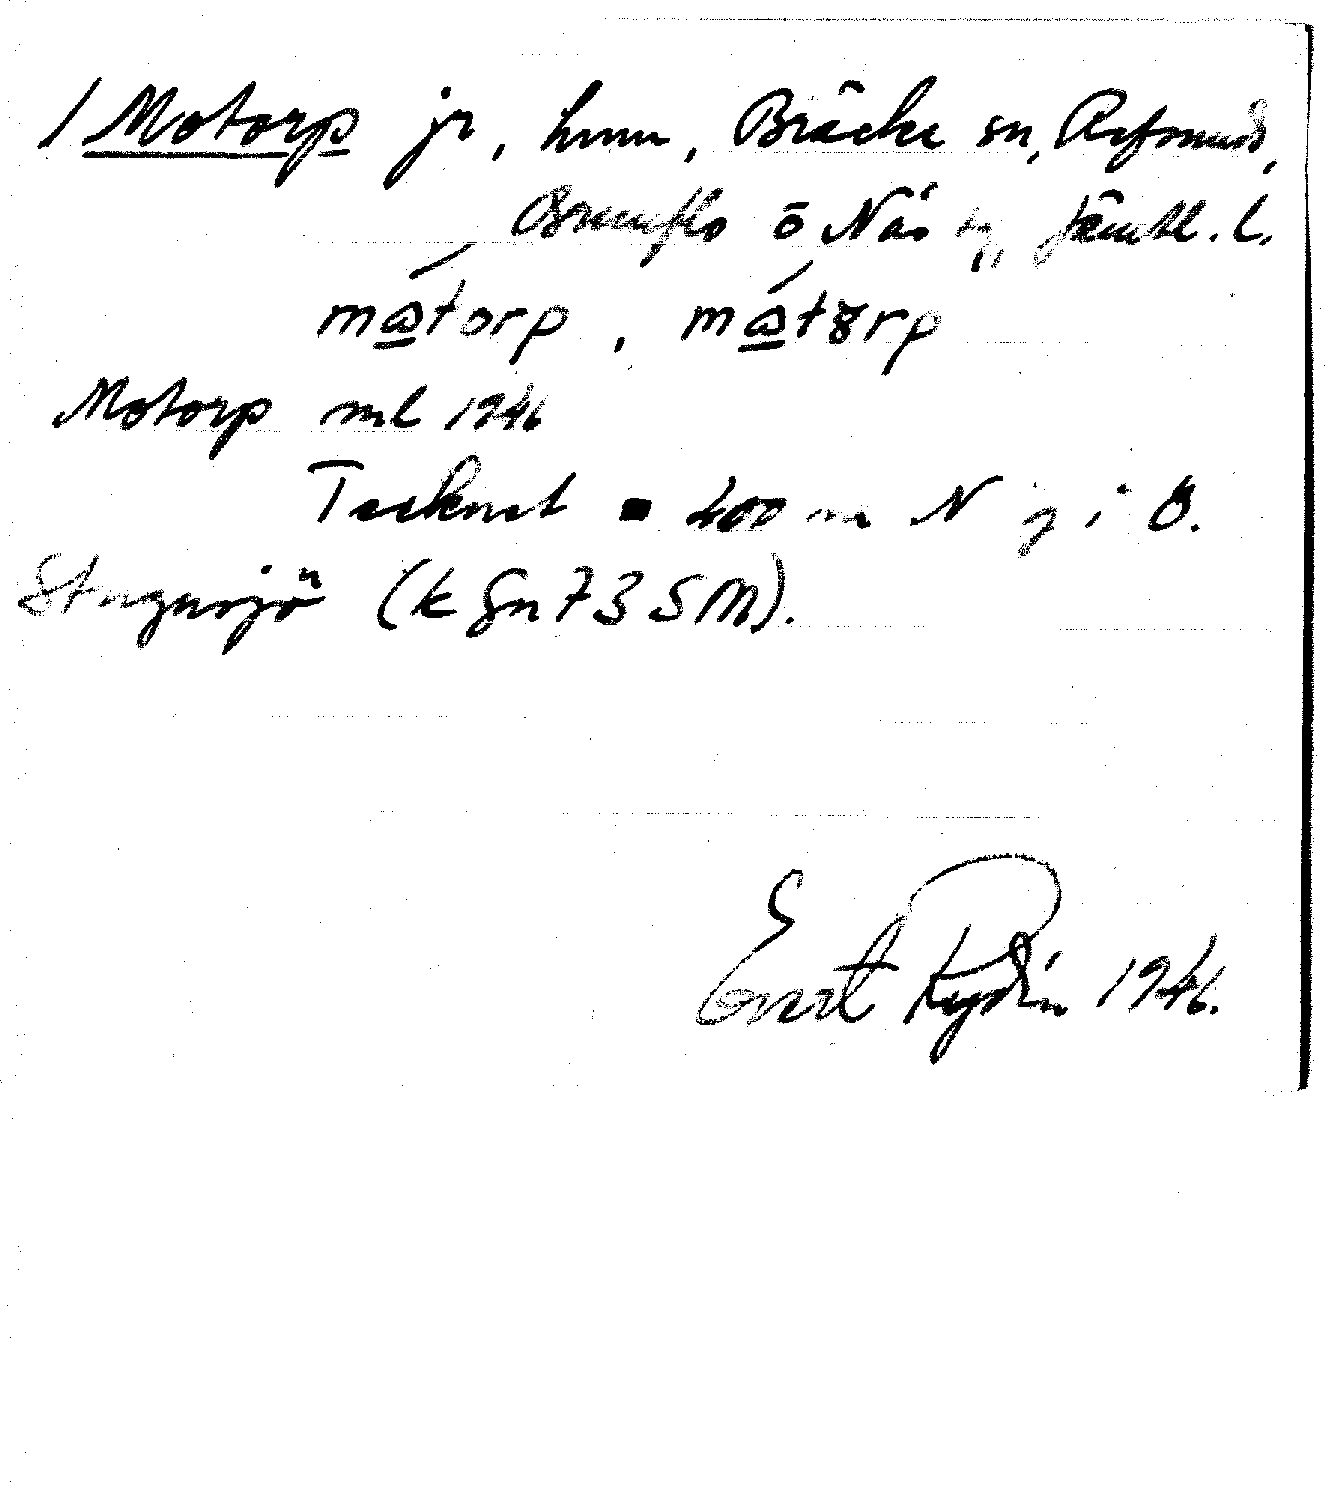 / Motorp jr, hmn, Bräcke sn, Refsunds,
Brunflo o Näs tg, Jämtl. l.
måtorp, måt8rp
Motorp ml 1946
Tecknet ▪ 400 m N g i Ö.
Stugusjö (k Gn 73 SM).
Evert Rydén 1946.